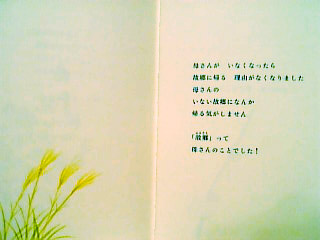 母さんが　いなくなったら
故郷に帰る　理由がなくなりました
母さんの
いない故郷になんか
帰る気がしません
「故郷」って
母さんのことでした！